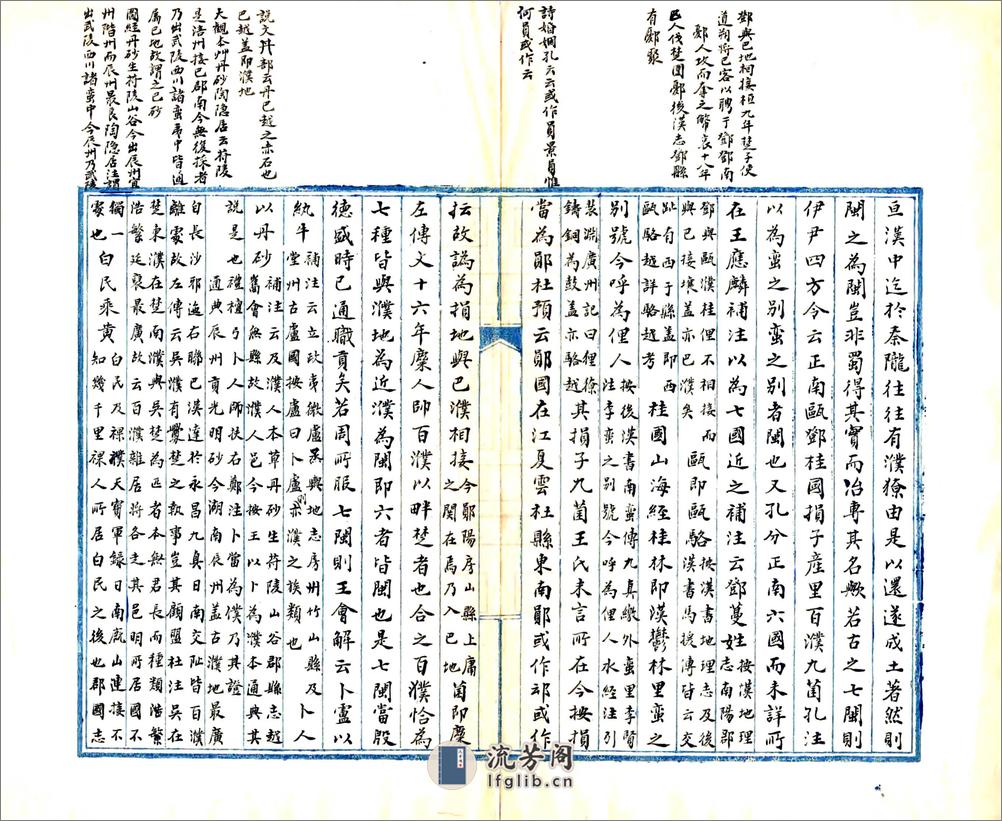 鄧與巴地相接桓九年楚子使
道朔將巴客以聘于鄧鄧南
鄙人攻而奪之幣哀十八年
巴人伐楚圍鄾後漢志鄧縣
有鄾聚
詩婚姻孔云云或作員景員惟
何員或作云
說文丹部云丹巴越之赤石也
巴越蓋即濮地
大觀本艸丹砂陶隱居云符陵
是涪州接巴郡南今無復採者
乃出武陵西川諸蠻夷中皆通
屬巴地故謂之巴砂
圖經丹砂生符陵山谷今出辰州宜
州階州而辰州最良陶隱居注謂
出武陵西川諸蠻中今辰州乃武陵
亘漢中迄於秦隴往往有濮獠由是以還遂成土著然則
閩之為閩豈非蜀得其實而冶專其名歟若古之七閩則
伊尹四方令云正南甌鄧桂國損子產里百濮九菌孔注
以為蠻之別蠻之別者閩也又孔分正南六國而未詳所
在王應麟補注以為七國近之補注云鄧蔓姓按漢地理
志南陽郡
鄧與甌濮桂俚不相接而
與巴接壤蓋亦巴濮矣甌即甌駱按漢書地理志及後
漢書馬援傳皆云交
趾有西于縣蓋即西
甌駱越詳駱越考桂國山海經桂林即漢鬱林里蠻之
別號今呼為俚人按後漢書南蠻傳九真徼外蠻里李賢
注李蠻之別號今呼為俚人水經注引
裴淵廣州記曰俚獠
鑄銅為鼓蓋亦駱越其損子九菌王氏未言所在今按損
當為鄖杜預云鄖國在江夏雲杜縣東南鄖或作䢵或作
抎故譌為損地與巴濮相接今鄖陽房山縣上庸
之閒在焉乃入巴地菌即麇
左傳文十六年麇人帥百濮以畔楚者也合之百濮恰為
七種皆與濮地為近濮為閩即六者皆閩也是七閩當殷
德盛時已通職貢矣若周所服七閩則王會解云卜盧以
紈牛補注云立政夷微盧烝輿地志房州竹山縣及卜人
堂州古盧國按盧曰卜盧則亦濮之族類也
以丹砂補注云及濮人本草丹砂生符陵山谷郡縣志越
嶲會無縣故濮人邑今按王以卜為濮本通典其
說是也禮檀弓卜人師扶右鄭注卜當為僕乃其證
通典辰州貢光明砂今湖南辰州蓋古濮地最廣
自長沙邪迤右聯巴漢達於永昌九真日南交趾皆百濮
離處故左傳云吳濮有釁楚之執事豈其顧盟杜注吳在
楚東濮在楚南濮與吳楚為匹者本無君長而種類浩繁
浩繁延袤最廣故云百濮離居將各走其邑明所居國不
獨一
處也白民乘黃白民及裸濮天寶軍錄曰南處山連接不
知幾千里裸人所居白民之後也郡國志
流芳阁
lfglib.cn